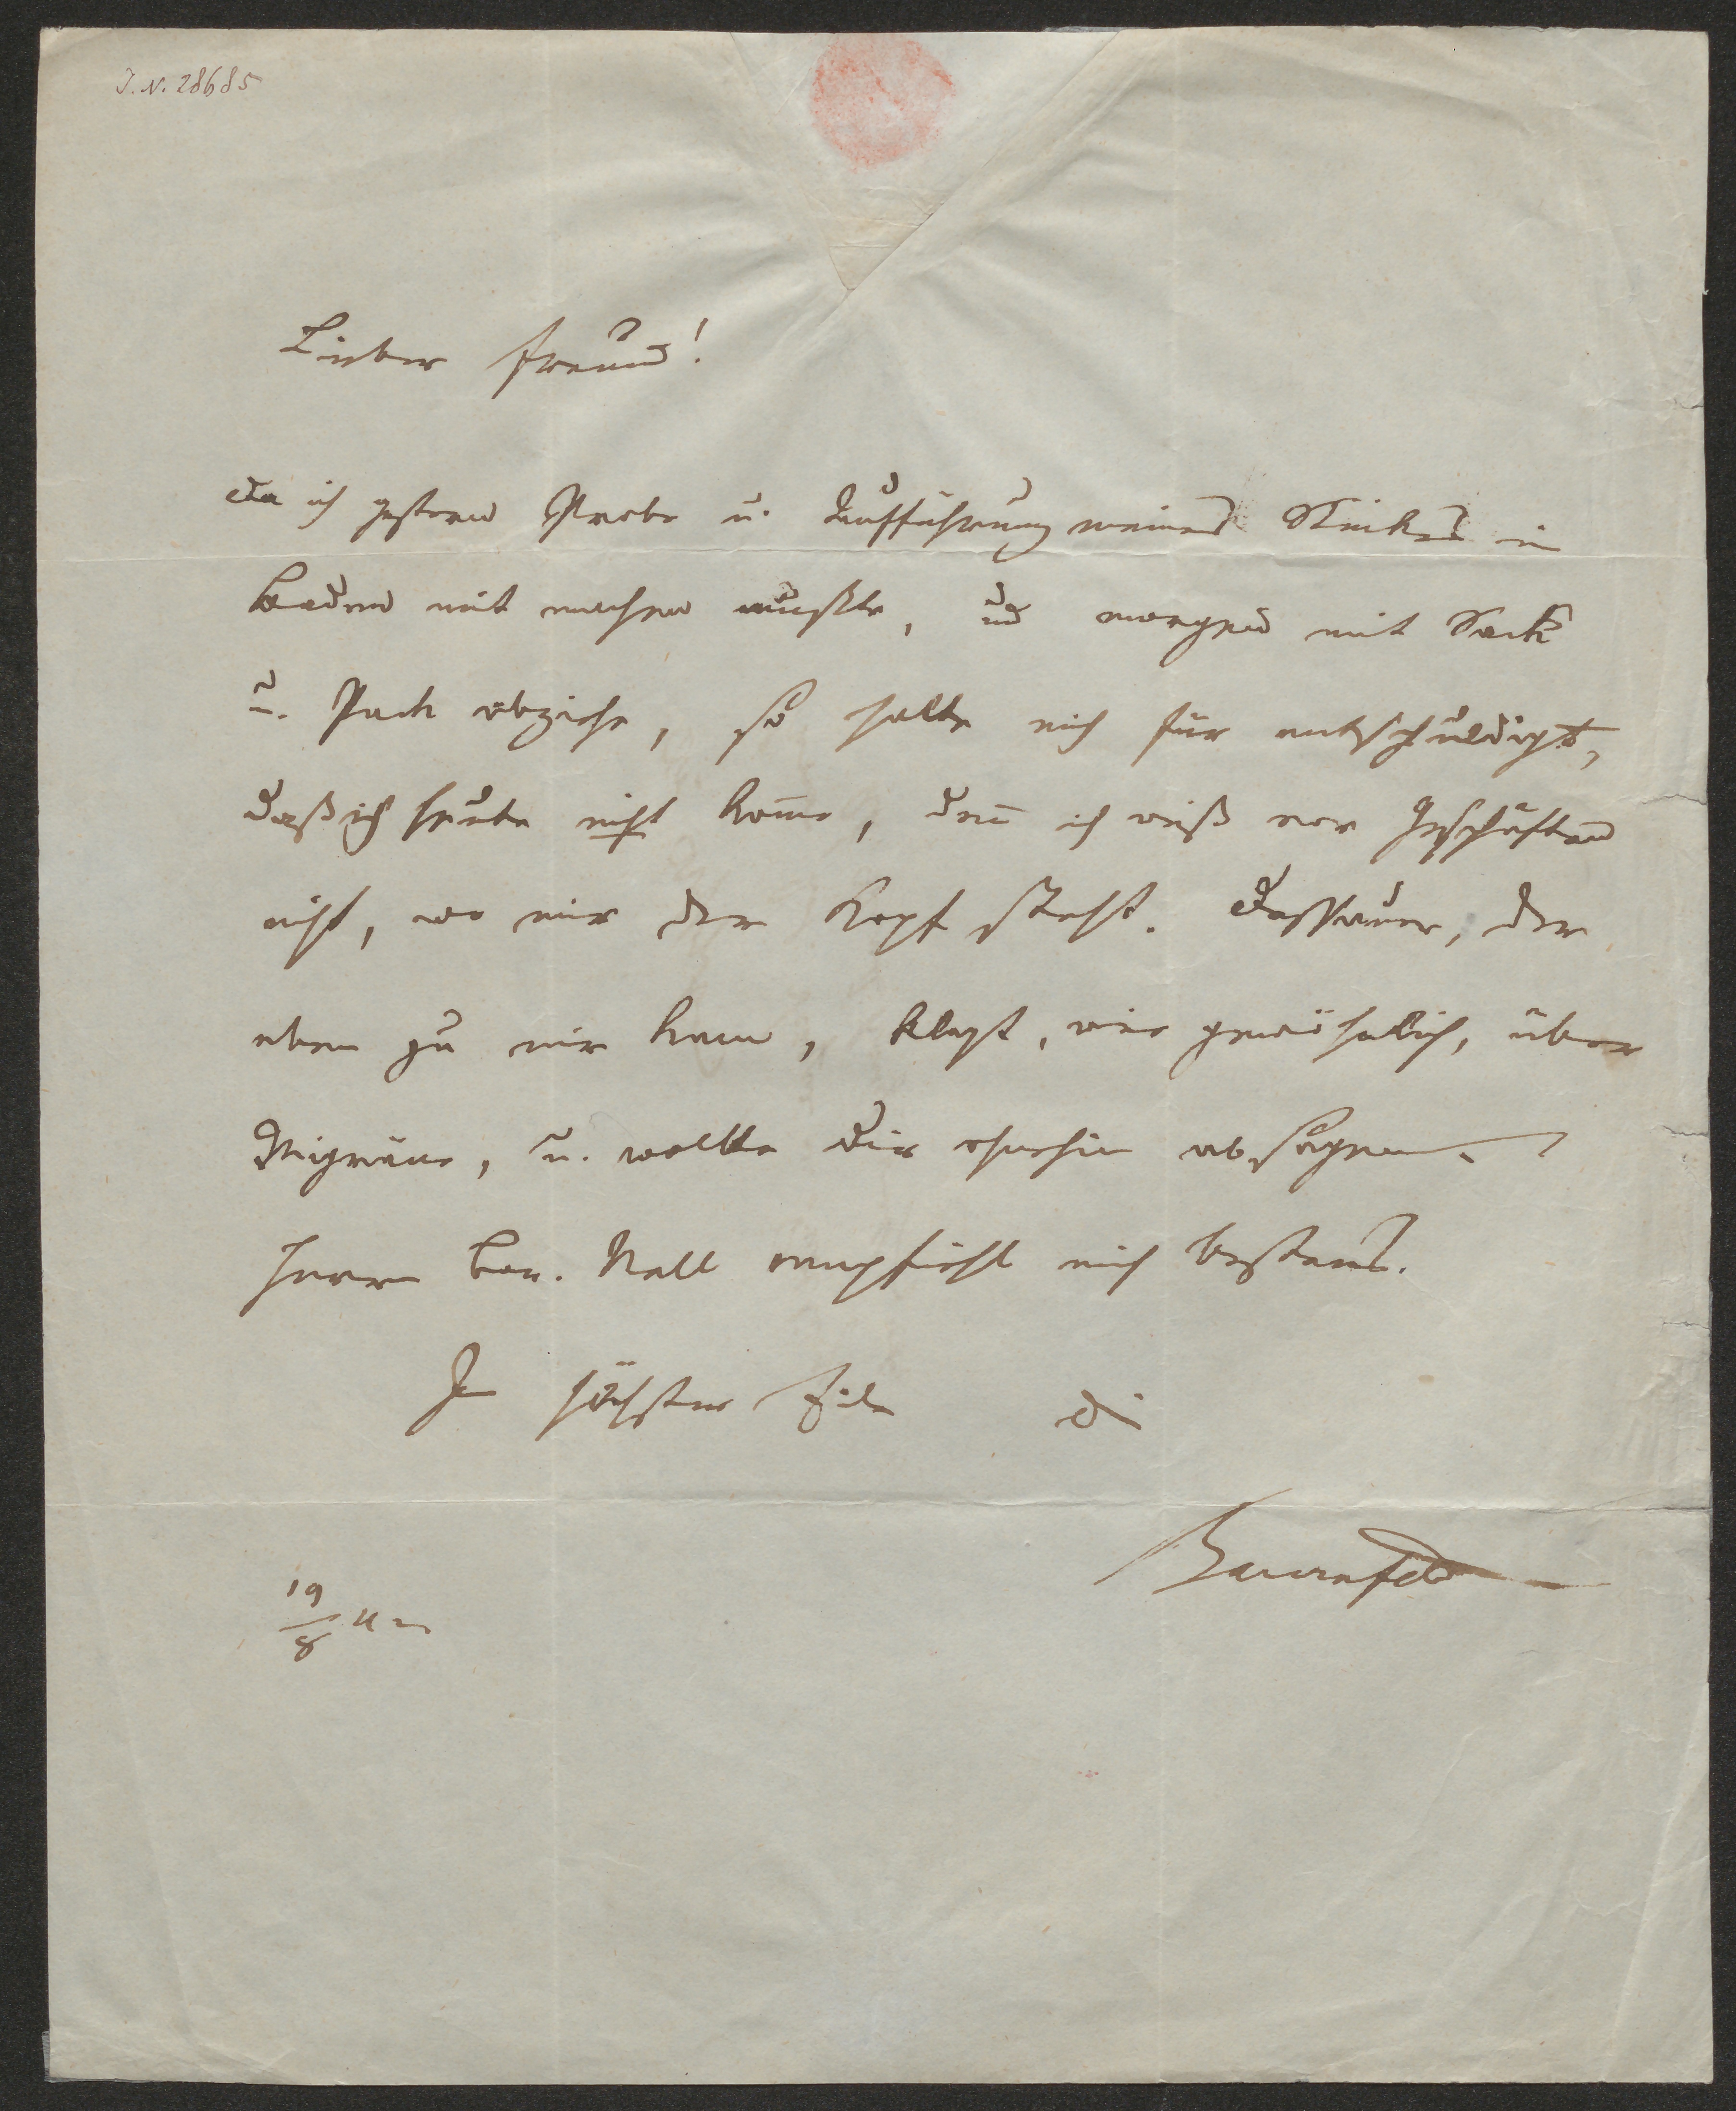 I. N. 28685
Lieber Freund!
Da ich gestern Probe u. Aufführung meines Stückes in
Baden mit machen mußte, und morgen mit Sack
u. Pack abziehe, so halte mich für entschuldigt,
daß ich heute nicht kom̄e, den̄ ich weiß vor Geschäften
nicht, wo mir der Kopf steht. Dessauer, der
eben zu mir kam, klagt, wie gewöhnlich, über
Migräne, u. wollte dir ohnehin absagen.
Herrn Bar. Noll empfiehl mich bestens.
In höchster Eile D
Bauernfeld
19/8 42